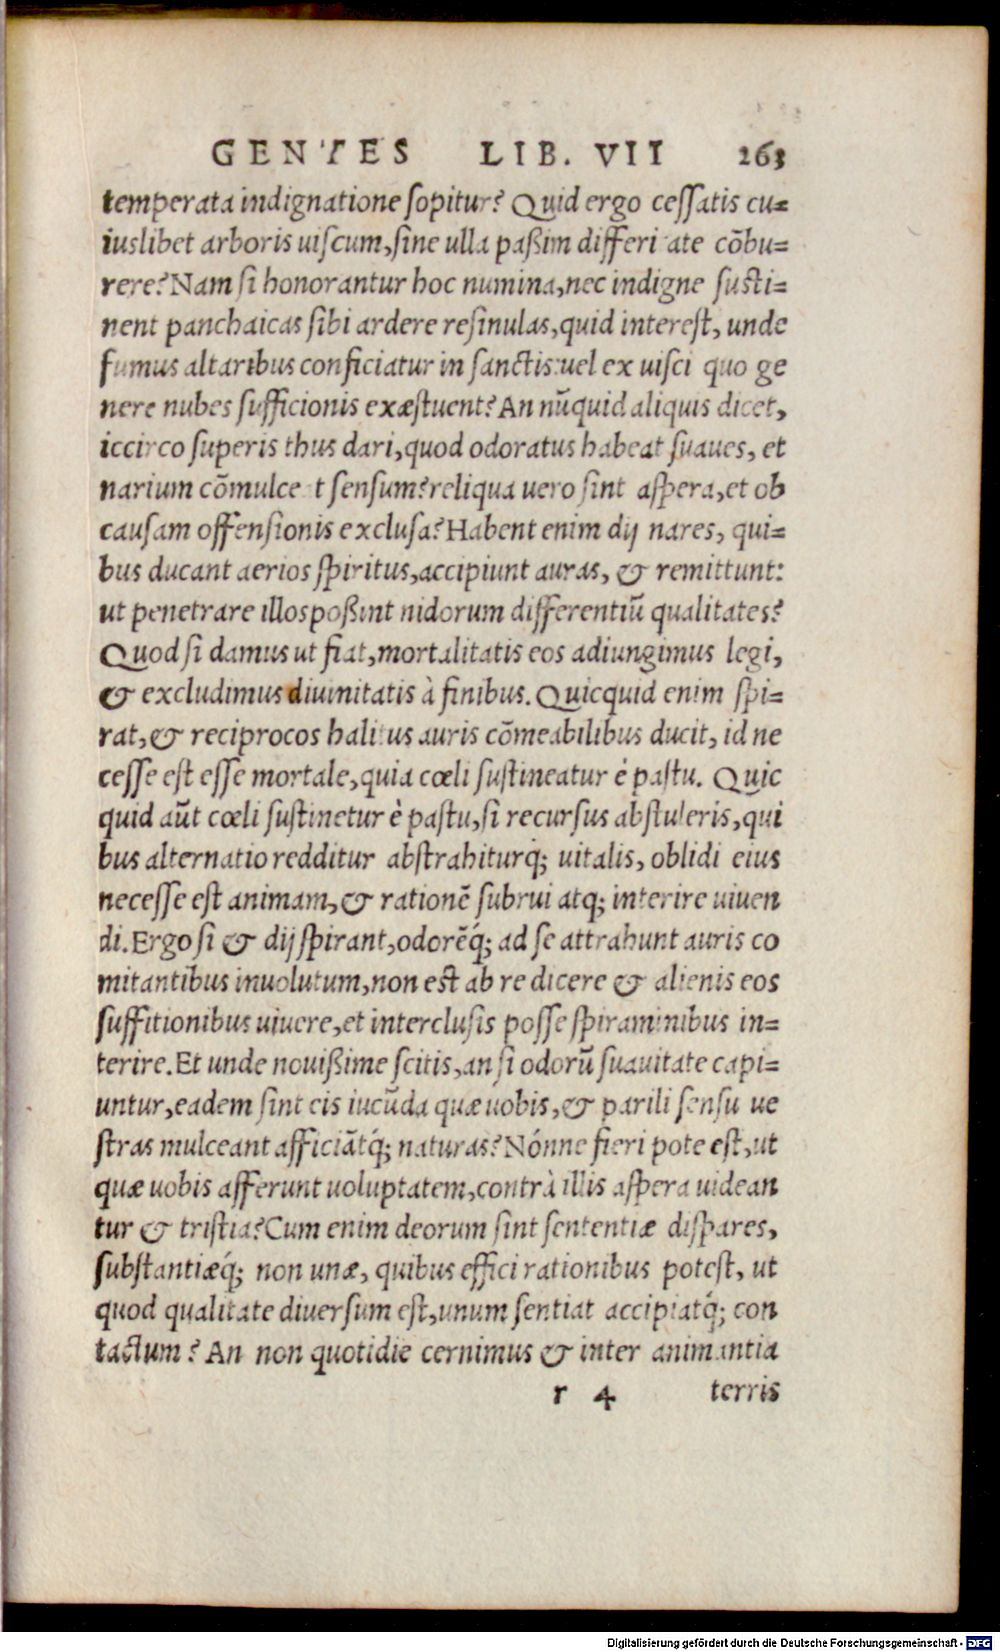 GENTES LIB. VII 263
temperata indignatione sopitur? Quid ergo cessatis cu=
iuslibet arboris uiscum, sine ulla paßim differitate cõbu=
rere? Nam si honorantur hoc numina, nec indigne susti=
nent panchaicas sibi ardere resinulas, quid interest, unde
fumus altaribus conficiatur in sanctis: uel ex uisci quo ge
nere nubes sufficionis exæstuent? An nũquid aliquis dicet,
iccirco superis thus dari, quod odoratus habeat suaues, et
narium cõmulceat sensum? reliqua uero sint aspera, et ob
causam offensionis exclusa? Habent enim dij nares, qui=
bus ducant aerios spiritus, accipiunt auras, & remittunt:
ut penetrare illos poßint nidorum differentiũ qualitates?
Quod si damus ut fiat, mortalitatis eos adiungimus legi,
& excludimus diuinitatis à finibus. Quicquid enim spi=
rat, & reciprocos halitus auris cõmeabilibus ducit, id ne
cesse est esse mortale, quia cœli sustineatur è pastu. Quic
quid aũt cœli sustinetur è pastu, si recursus abstuleris, qui
bus alternatio redditur abstrahiturq́; uitalis, oblidi eius
necesse est animam, & rationẽ subrui atq; interire uiuen
di. Ergo si & dij spirant, odorẽq́; ad se attrahunt auris co
mitantibus inuolutum, non est ab re dicere & alienis eos
suffitionibus uiuere, et interclusis posse spiraminibus in=
terire. Et unde nouißime scitis, an si odorũ suauitate capi=
untur, eadem sint eis iucũda quæ uobis, & parili sensu ue
stras mulceant afficiãtq́; naturas? Nónne fieri pote est, ut
quæ uobis afferunt uoluptatem, contrà illis aspera uidean
tur & tristia? Cum enim deorum sint sententiæ dispares,
substantiæq́; non unæ, quibus effici rationibus potest, ut
quod qualitate diuersum est, unum sentiat accipiatq́; con
tactum? An non quotidie cernimus & inter animantia
r 4 terris
Digitalisierung gefördert durch die Deutsche Forschungsgemeinschaft - DFG